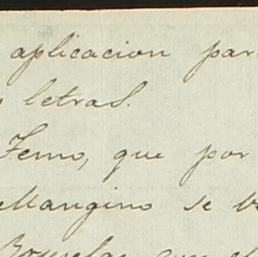 aplicacion par
letras.
Temo, que por
Mangino se